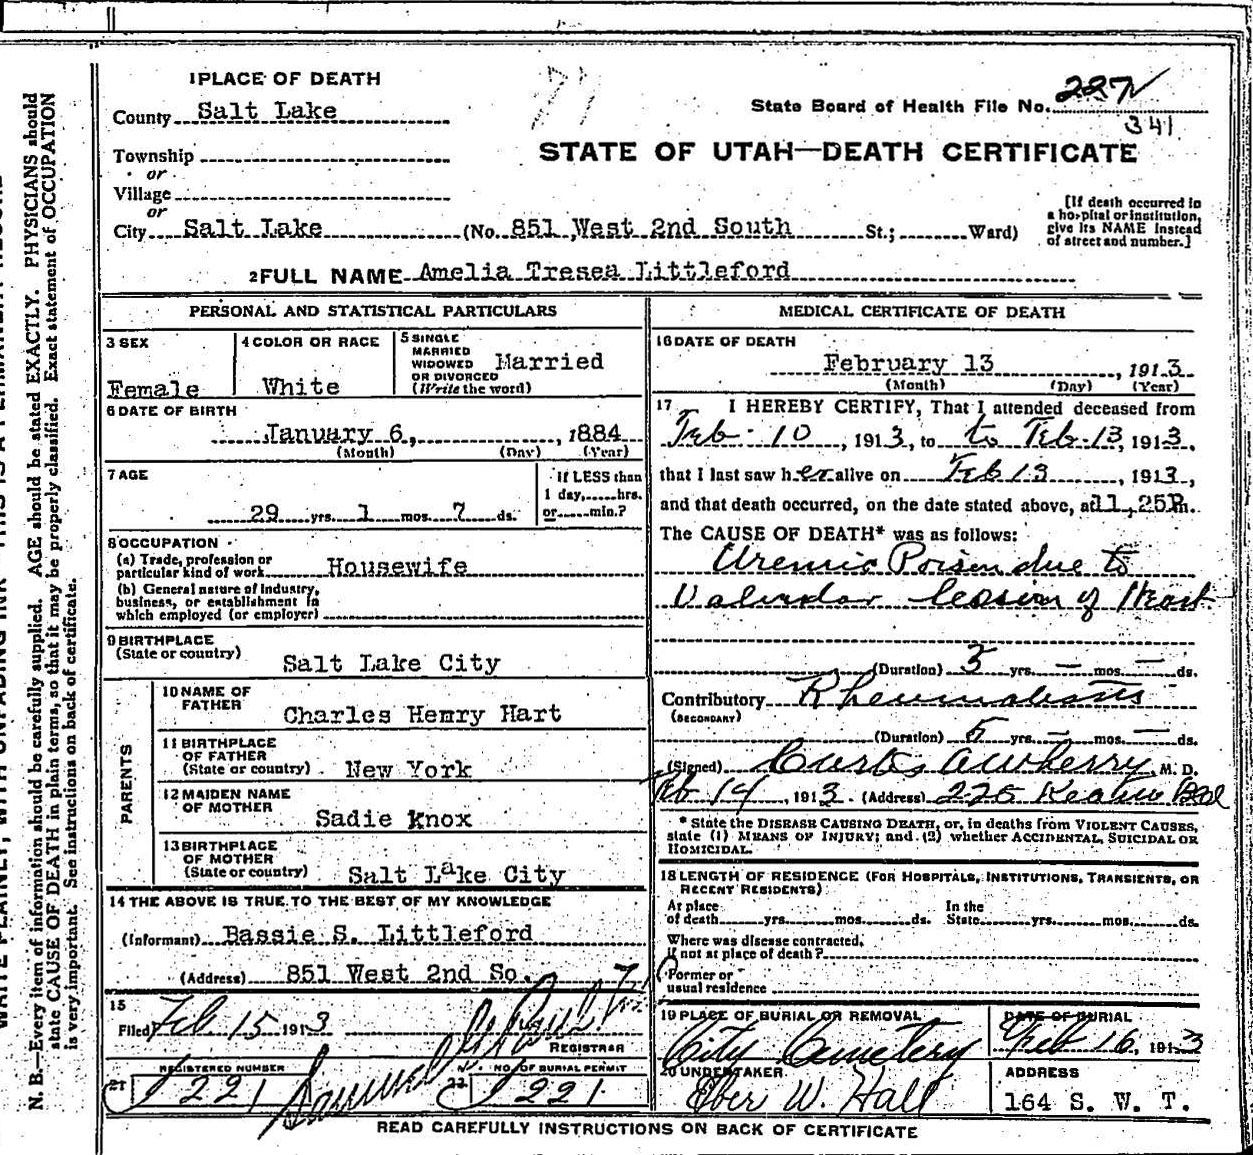 1 PLACE OF DEATH
County Salt Lake
Township
or
Village
or
City Salt Lake (No. 851 West 2nd South St.; Ward)
State Board of Health File No. 227
341
STATE OF UTAH—DEATH CERTIFICATE
[If death occurred in
a hospital or institution,
give its NAME instead
of street and number.]
2 FULL NAME Amelia Tresea Littleford
PERSONAL AND STATISTICAL PARTICULARS
3 SEX
Female
4 COLOR OR RACE
White
5 SINGLE
MARRIED
WIDOWED
OR DIVORCED
(Write the word)
Married
6 DATE OF BIRTH
January 6, , 1884
(Month) (Day) (Year)
7 AGE
29 yrs. 1 mos. 7 ds.
If LESS than
1 day, hrs.
or min.?
8 OCCUPATION
(a) Trade, profession or
particular kind of work Housewife
(b) General nature of Industry,
business, or establishment in
which employed (or employer)
9 BIRTHPLACE
(State or country) Salt Lake City
PARENTS
10 NAME OF
FATHER
Charles Henry Hart
11 BIRTHPLACE
OF FATHER
(State or country) New York
12 MAIDEN NAME
OF MOTHER
Sadie Knox
13 BIRTHPLACE
OF MOTHER
(State or country) Salt Lake City
14 THE ABOVE IS TRUE TO THE BEST OF MY KNOWLEDGE
(Informant) Bassie S. Littleford
(Address) 851 West 2nd So.
15
Filed Feb. 15 1913
REGISTRAR
REGISTERED NUMBER
21 221
Samuel
22 NO. OF BURIAL PERMIT
221
MEDICAL CERTIFICATE OF DEATH
16 DATE OF DEATH
February 13 , 1913
(Month) (Day) (Year)
17 I HEREBY CERTIFY, That I attended deceased from
Feb. 10 , 1913, to to Feb. 13, 1913,
that I last saw her alive on Feb 13 , 1913,
and that death occurred, on the date stated above, at 11,25P m.
The CAUSE OF DEATH* was as follows:
Uremic Poison due to
Valvular lession of Heart
(Duration) 3 yrs. — mos. — ds.
Contributory Rheumatism
(SECONDARY)
(Duration) 5 yrs. — mos. — ds.
(Signed) Curtis Awherry, M. D.
Feb 14 , 1913. (Address) 225
* State the DISEASE CAUSING DEATH, or, in deaths from VIOLENT CAUSES,
state (1) MEANS OF INJURY; and (2) whether ACCIDENTAL, SUICIDAL OR
HOMICIDAL.
18 LENGTH OF RESIDENCE (FOR HOSPITALS, INSTITUTIONS, TRANSIENTS, OR
RECENT RESIDENTS)
At place
of death yrs. mos. ds.
In the
State yrs. mos. ds.
Where was disease contracted,
If not at place of death?
Former or
usual residence
19 PLACE OF BURIAL OR REMOVAL
City Cemetery
DATE OF BURIAL
Feb 16, 1913
20 UNDERTAKER
Eber W. Hall
ADDRESS
164 S. W. T.
READ CAREFULLY INSTRUCTIONS ON BACK OF CERTIFICATE
N. B.—Every item of information should be carefully supplied. AGE should be stated EXACTLY. PHYSICIANS should
state CAUSE OF DEATH in plain terms, so that it may be properly classified. Exact statement of OCCUPATION
is very important. See instructions on back of certificate.